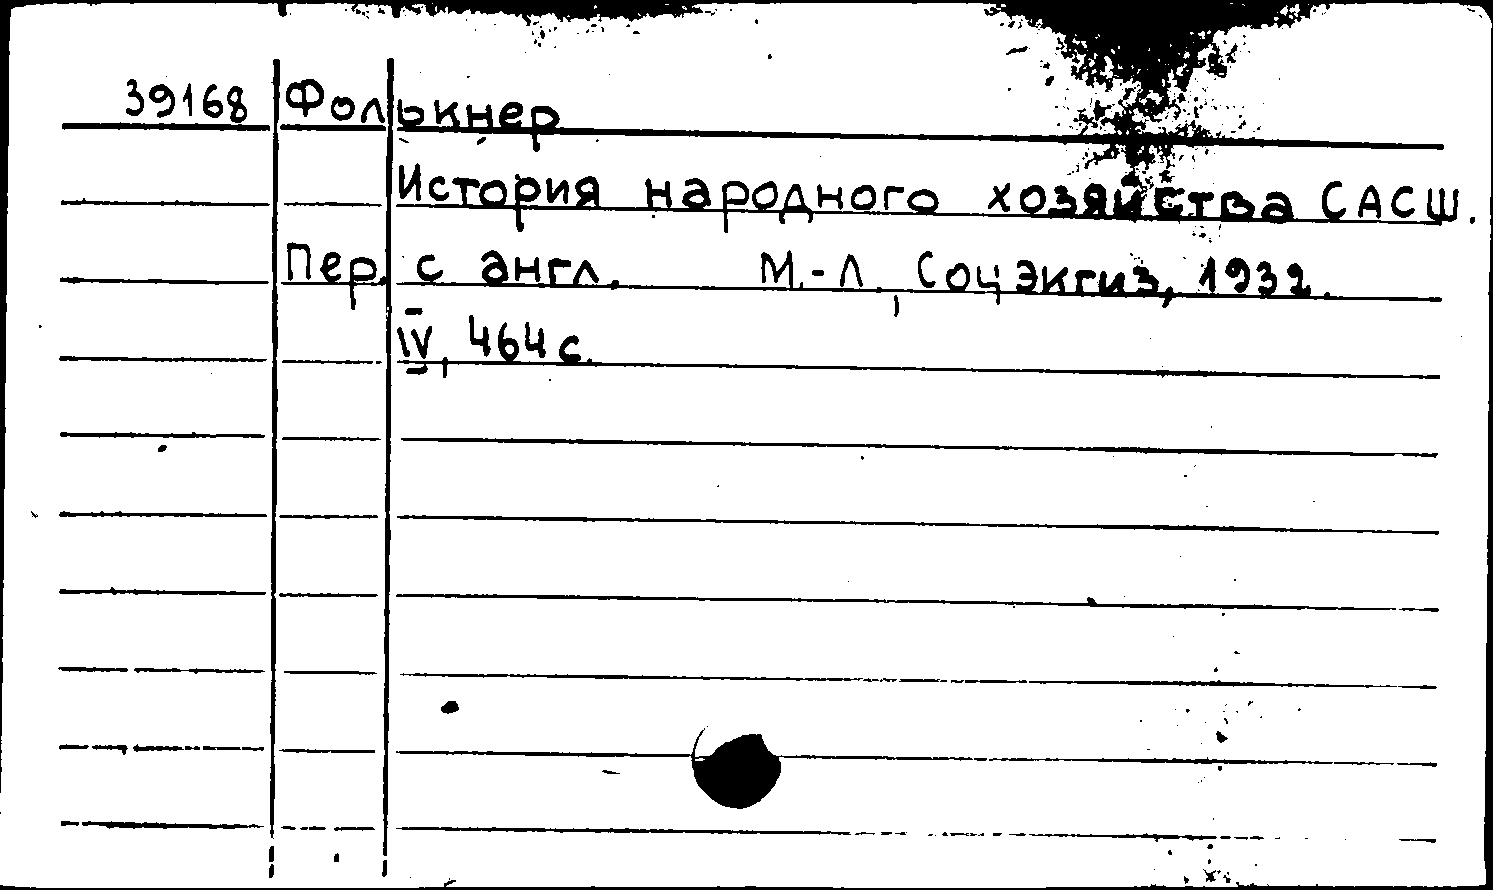 39168 Фолькнер
История народного хозяйства САСШ.
Пер. с англ. М.-Л., Соцэкгиз, 1932.
IV, 464 с.